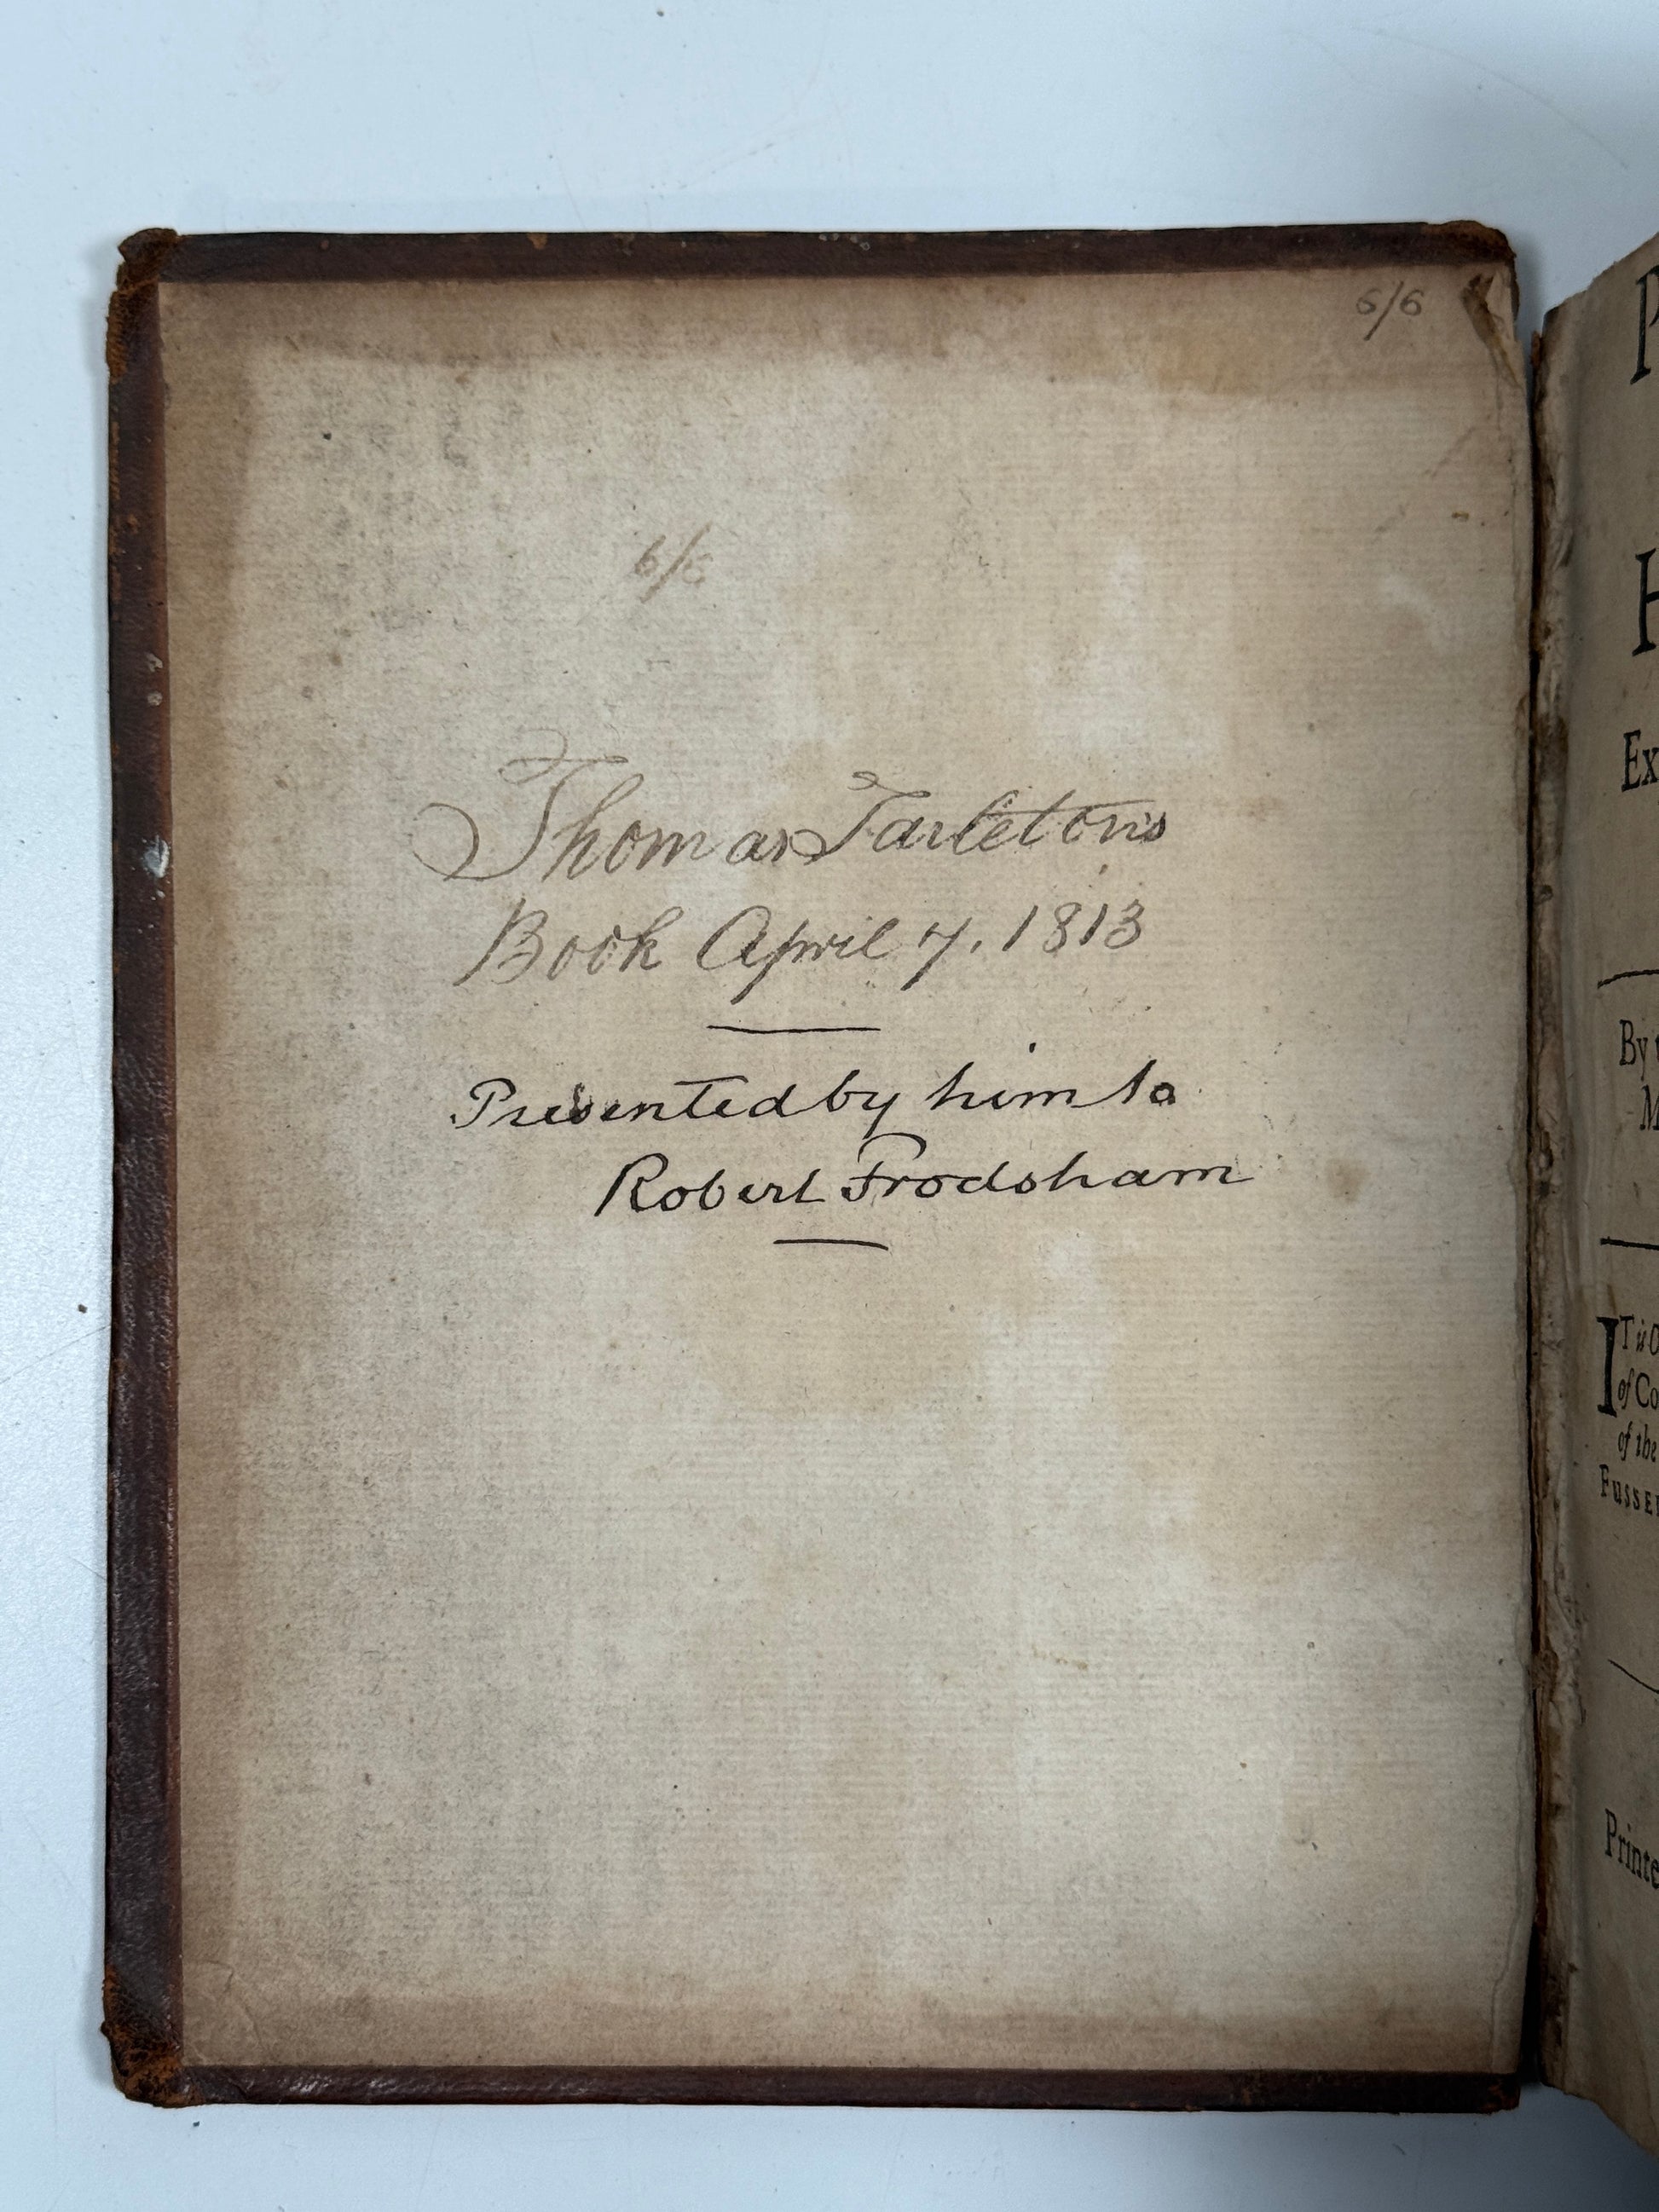 6/6
6/6
Thomas Tarletons
Book April 7. 1813
Presented by him to
Robert Frodsham
P
H
Ex
By
M
IT is O
of Co
of the
FUSSE
Printe